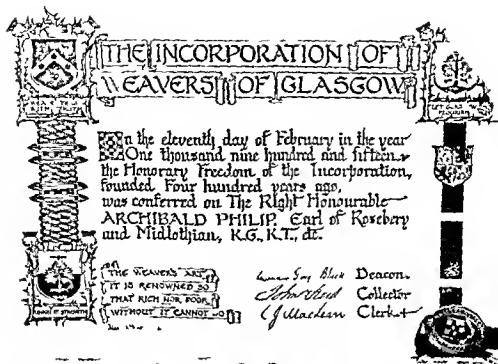 THE INCORPORATION OF
WEAVERS OF GLASGOW
On the eleventh day of February in the year
One thousand nine hundred and fifteen
the Honorary Freedom of the Incorporation,
founded Four hundred years ago,
was conferred on The Right Honourable
ARCHIBALD PHILIP, Earl of Rosebery
and Midlothian, K.G., K.T., &c.
THE WEAVERS ART
IT IS RENOWNED SO
THAT RICH NOR POOR
WITHOUT IT CANNOT GO
Deacon.
John Collector
Clerk
LET GLAS
FLOURISH